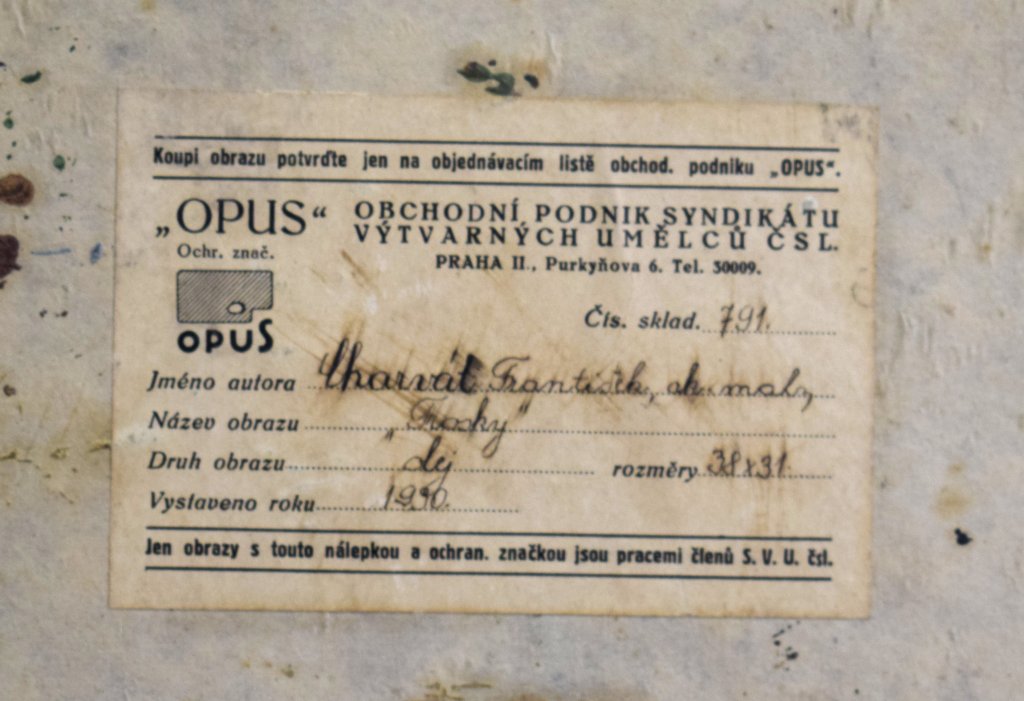 Koupi obrazu potvrďte jen na objednávacím listě obchod. podniku „OPUS“.
„OPUS“
OBCHODNÍ PODNIK SYNDIKÁTU
VÝTVARNÝCH UMĚLCŮ ČSL.
Ochr. znač.
PRAHA II., Purkyňova 6. Tel. 30009.
OPUS
Čís. sklad. 791.
Jméno autora Charvát František, ak. mal.,
Název obrazu „Trosky“
Druh obrazu rozměry 38x31.
Vystaveno roku 1930.
Jen obrazy s touto nálepkou a ochran. značkou jsou pracemi členů S. V. U. čsl.